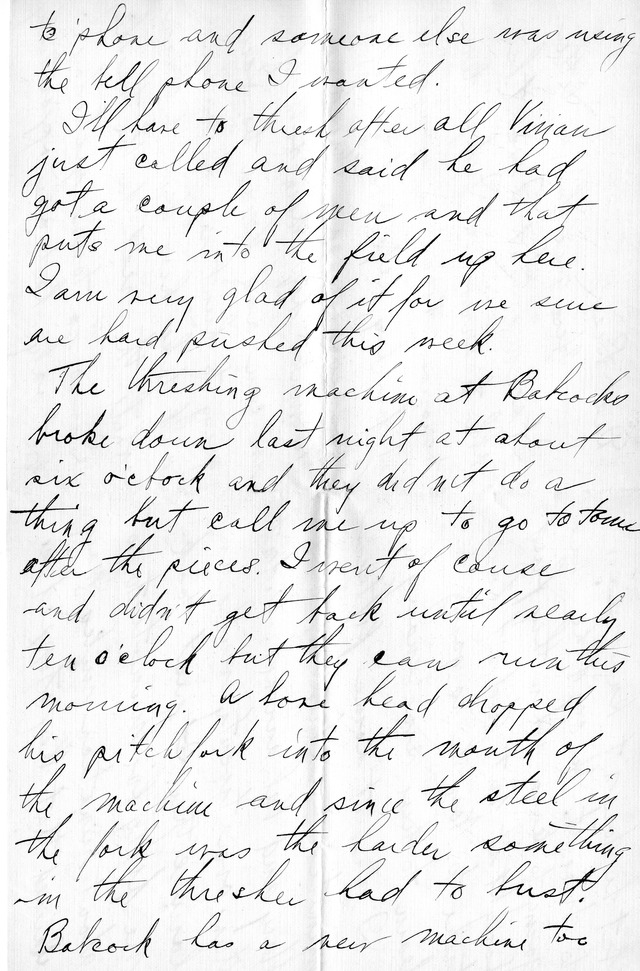 to 'phone and someone else was using
the bell phone I wanted.
I'll have to thresh after all Vivian
just called and said he had
got a couple of men and that
puts me into the field up here.
I am very glad of it for we sure
are hard pushed this week.
The threshing machine at Babcocks
broke down last night at about
six o'clock and they didn't do a
thing but call me up to go to town
after the pieces. I went of couse
and didn't get back until nearly
ten o'clock but they can run this
morning. A bone head dropped
his pitchfork into the mouth of
the machine and since the steel in
the fork was the harder something
in the thresher had to bust.
Babcock has a new machine too